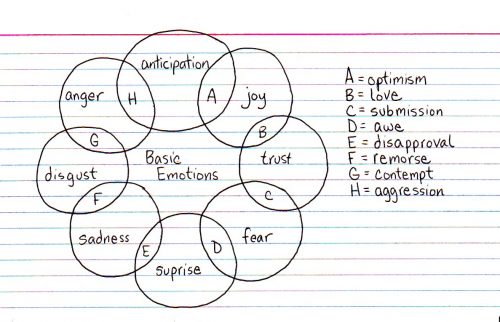 anticipation
anger
H
A
joy
G
B
disgust
Basic
Emotions
trust
F
C
sadness
E
suprise
D
fear
A = optimism
B = love
C = submission
D = awe
E = disapproval
F = remorse
G = contempt
H = aggression